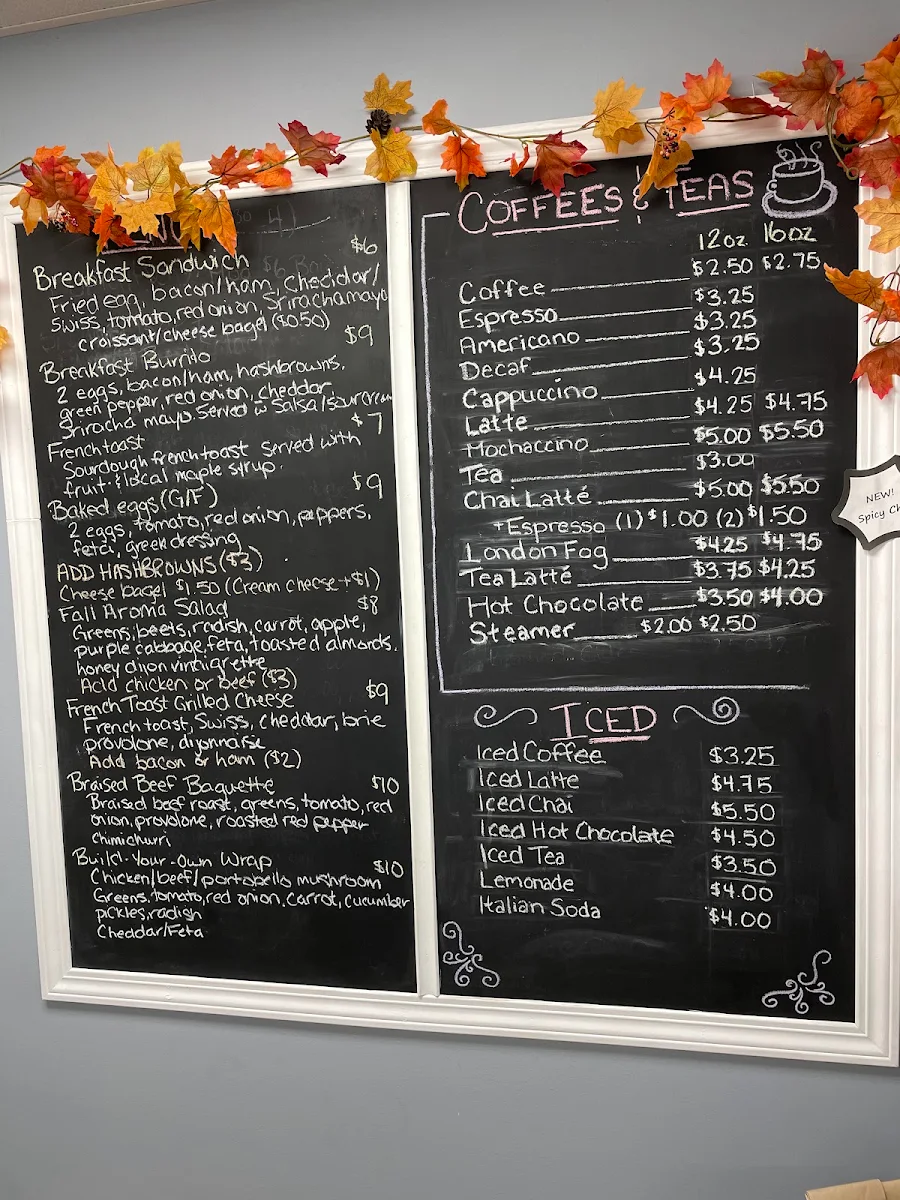 Breakfast Sandwich $6
Fried egg, bacon/ham, Cheddar/
Swiss, tomato, red onion, Sriracha mayo
croissant/cheese bagel ($0.50)
Breakfast Burrito $9
2 eggs, bacon/ham, hashbrowns,
green pepper, red onion, cheddar,
Sriracha mayo. Served w Salsa/sourcream
French toast $7
Sourdough french toast served with
fruit & local maple syrup.
Baked eggs (G/F) $9
2 eggs, tomato, red onion, peppers,
feta, greek dressing
ADD HASHBROWNS ($3)
Cheese bagel $1.50 (Cream cheese +$1)
Fall Aroma Salad $8
Greens, beets, radish, carrot, apple,
purple cabbage, feta, toasted almonds,
honey dijon vinhigrette
Add chicken or beef ($3)
French Toast Grilled Cheese $9
French toast, Swiss, cheddar, brie
provolone, dijonnaise
Add bacon or ham ($2)
Braised Beef Baguette $10
Braised beef roast, greens, tomato, red
onion, provolone, roasted red pepper
chimichurri
Build-Your-Own Wrap $10
Chicken/beef/portobello mushroom
Greens, tomato, red onion, carrot, cucumber
pickles, radish
Cheddar/Feta
COFFEES & TEAS
12oz 16oz
Coffee $2.50 $2.75
Espresso $3.25
Americano $3.25
Decaf $3.25
Cappuccino $4.25
Latte $4.25 $4.75
Mochaccino $5.00 $5.50
Tea $3.00
Chai Latté $5.00 $5.50
+Espresso (1) $1.00 (2) $1.50
London Fog $4.25 $4.75
Tea Latté $3.75 $4.25
Hot Chocolate $3.50 $4.00
Steamer $2.00 $2.50
ICED
Iced Coffee $3.25
Iced Latte $4.75
Iced Chai $5.50
Iced Hot Chocolate $4.50
Iced Tea $3.50
Lemonade $4.00
Italian Soda $4.00
NEW!
Spicy